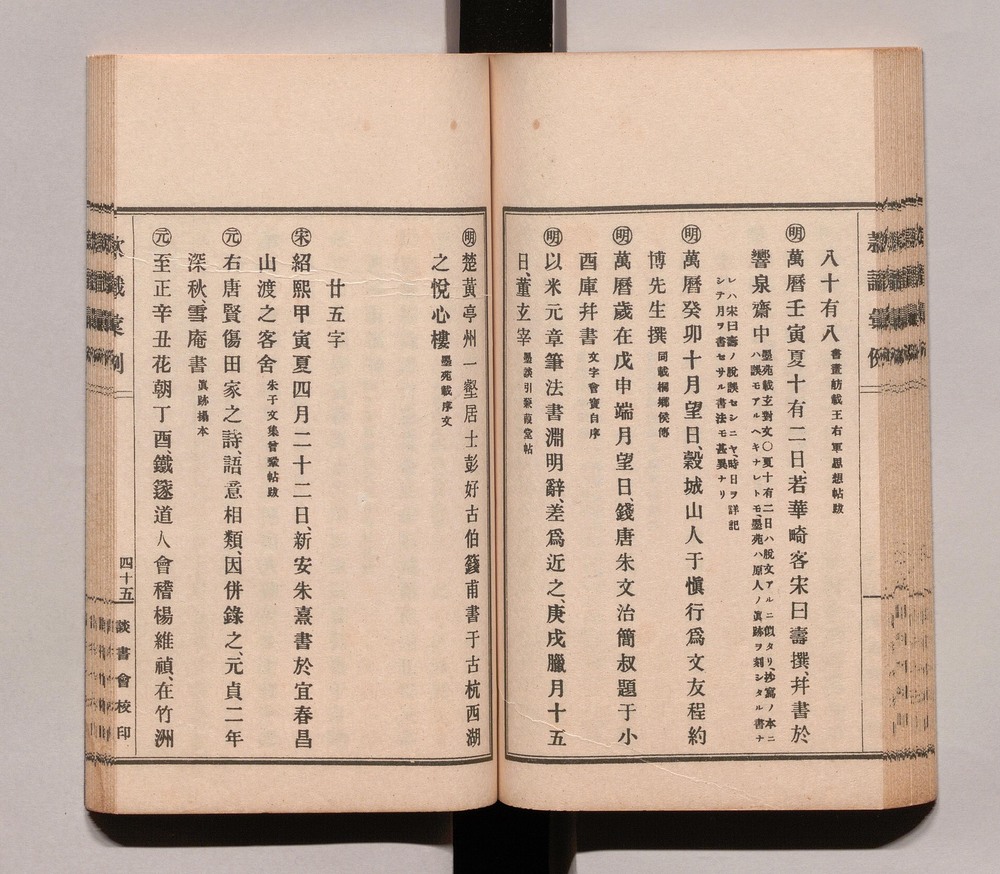 八十有八 書畫舫載王右軍思想帖跋
㊔萬曆壬寅夏十有二日、若華畸客宋曰壽撰、幷書於
響泉齋中 墨苑載玄對文〇夏十有二日ハ脫文アルニ似タリ、抄寫ノ本ニ
ハ誤モアルヘキナレトモ、墨苑ハ原人ノ眞跡ヲ刻シタル書ナ
レハ宋曰壽ノ脫誤セシニヤ、時日ヲ詳記
シテ月ヲ書セサル書法モ甚異ナリ
㊔萬曆癸卯十月望日、穀城山人于愼行爲文友程約
博先生撰 同載桐鄉侯傳
㊔萬曆歲在戊申端月望日、錢唐朱文治簡叔題于小
酉庫幷書 文字會寶自序
㊔以米元章筆法書淵明辭、差爲近之、庚戌臘月十五
日、董玄宰 墨談引蒹葭堂帖
㊔楚黃亭州一壑居士彭好古伯籛甫書于古杭西湖
之悅心樓 墨苑載序文
廿五字
㊍紹熙甲寅夏四月二十二日、新安朱熹書於宜春昌
山渡之客舍 朱子文集曾鞏帖跋
㊌右唐賢傷田家之詩、語意相類、因倂錄之、元貞二年
深秋雪庵書 眞跡搨本
㊌至正辛丑花朝丁酉、鐵篴道人會稽楊維禎、在竹洲
四十五 談書會校印